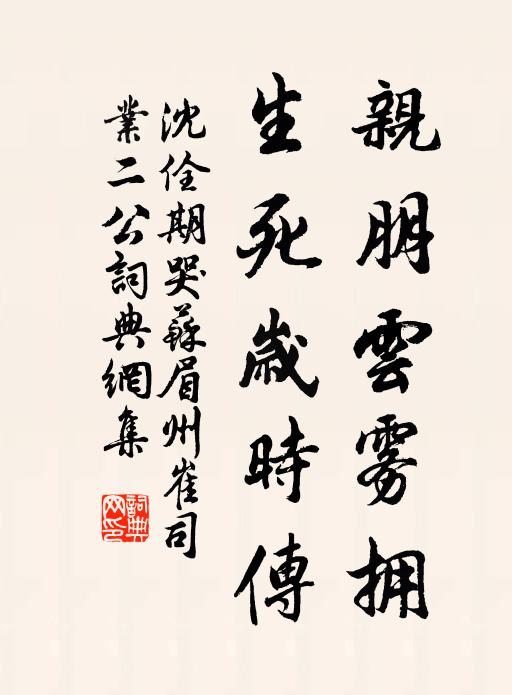 親朋雲雾拥
生死歲時傳
沈佺期哭蘇眉州崔司
業二公詞典網集
詞典網印